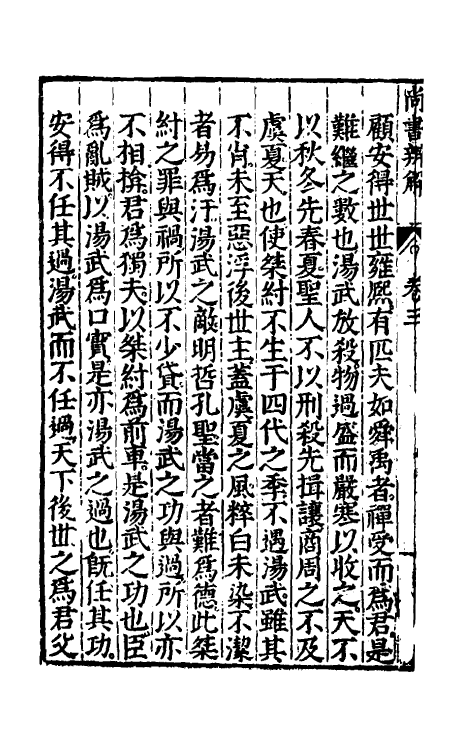 尚書辨解
卷三
顧安得世世雍熙有匹夫如舜禹者禪受而爲君是
難繼之數也湯武放殺物過盛而嚴寒以收之天不
以秋冬先春夏聖人不以刑殺先揖讓商周之不及
虞夏天也使桀紂不生于四代之季不遇湯武雖其
不肖未至惡浮後世主蓋虞夏之風粹白未染不潔
者易爲汙湯武之敵明哲孔聖當之者難爲德此桀
紂之罪與禍所以不少貸而湯武之功與過所以亦
不相揜君爲獨夫以桀紂爲前車是湯武之功也臣
爲亂賊以湯武爲口實是亦湯武之過也旣任其功
安得不任其過湯武而不任過天下後世之爲君父